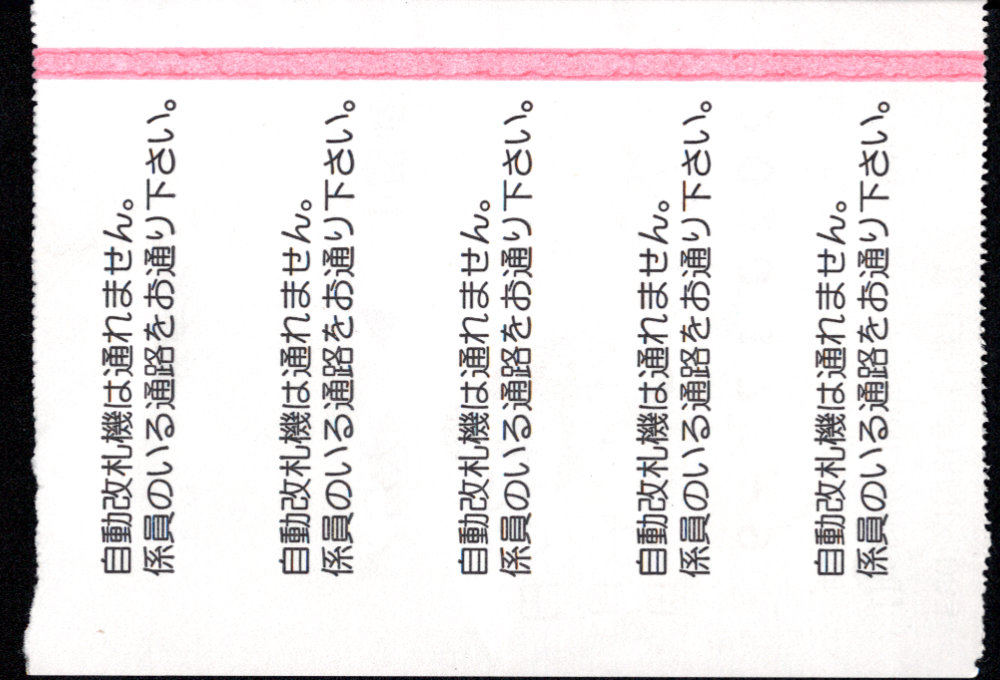 自動改札機は通れません。
係員のいる通路をお通り下さい。
自動改札機は通れません。
係員のいる通路をお通り下さい。
自動改札機は通れません。
係員のいる通路をお通り下さい。
自動改札機は通れません。
係員のいる通路をお通り下さい。
自動改札機は通れません。
係員のいる通路をお通り下さい。